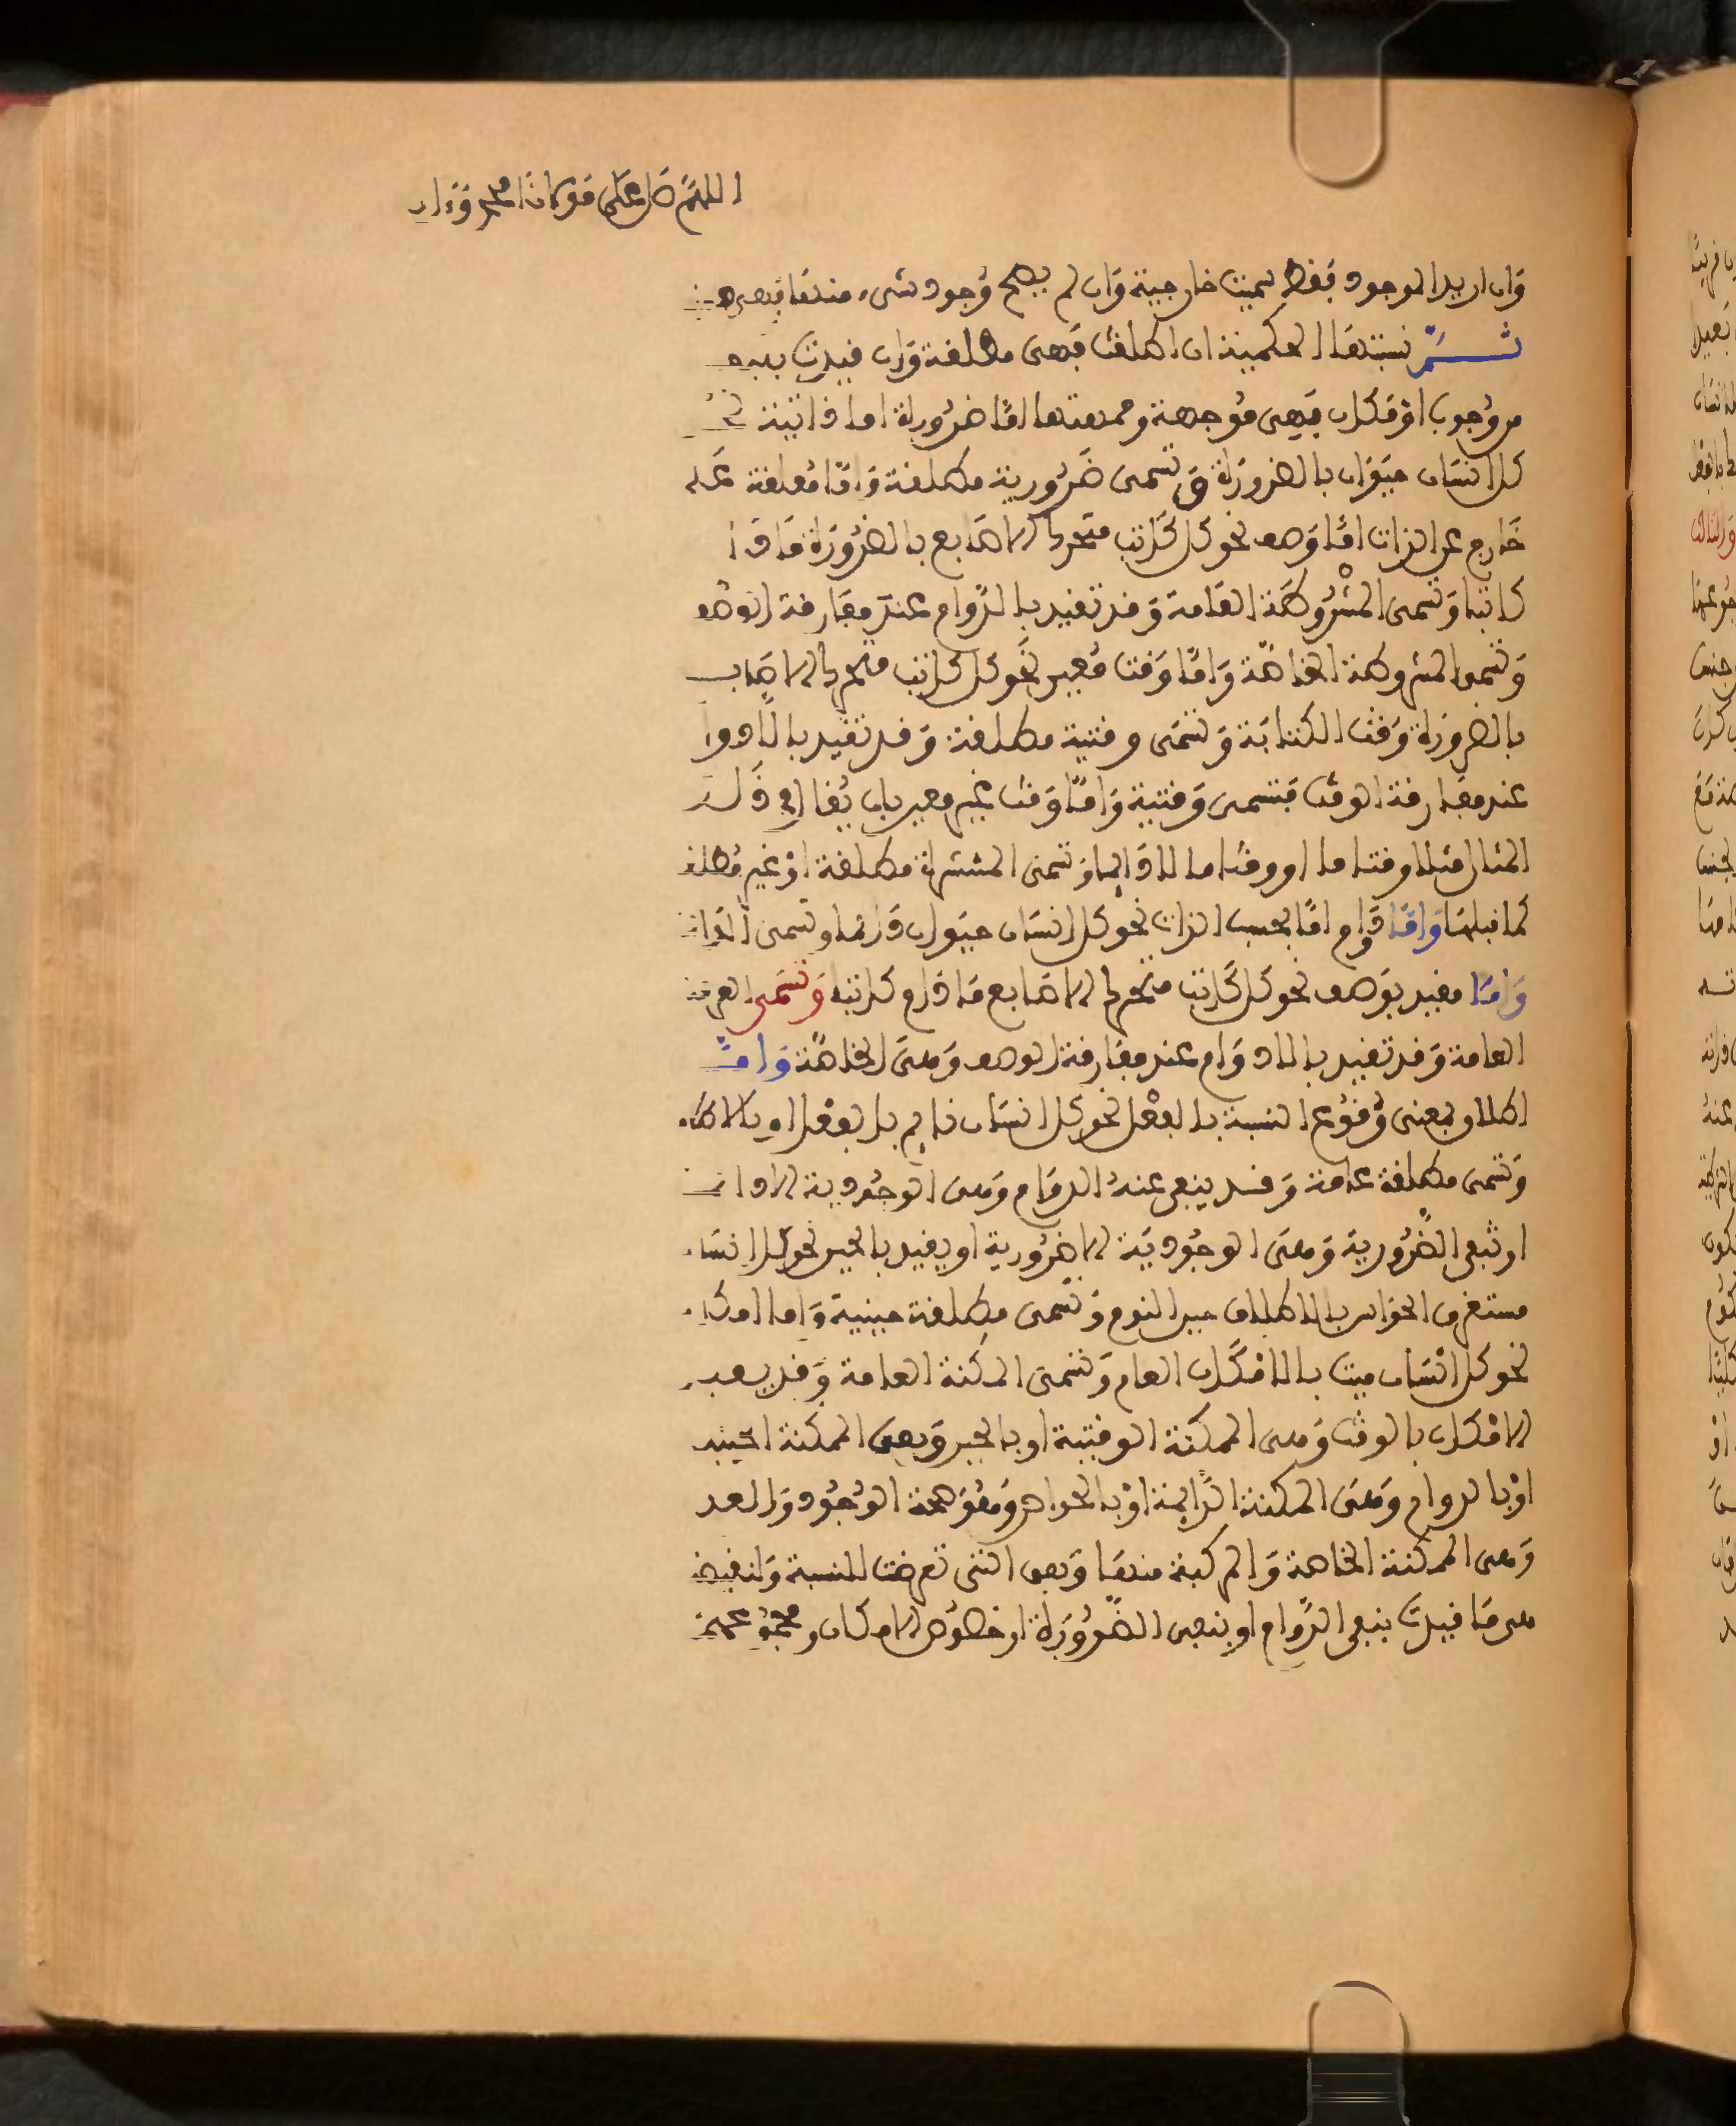 اللهم صل على مولانا محمد وءاله
وان اريد الموجود فقط سميت خارجية وان لم يصح وجود شيء منها فهي
ثم نسبتها الحكمية ان اطلقت فهي مطلقة وان قيدت
من وجوب او مكان فهي موجهة وجهتها اما ضرورة اما ذاتية نحو
كل انسان حيوان بالضرورة وتسمى ضرورية مطلقة واما معلقة على
خارج عن الذات اما وصف نحو كل كاتب متحرك الاصابع بالضرورة مادا
كاتبا وتسمى المشروطة العامة وقد تقيد بالدوام عند مفارقة الوصف
وتسمى المشروطة الخاصة واما وقت معين نحو كل كاتب متحرك الاصابـ
بالضرورة وقت الكتابة وتسمى وقتية مطلقة وقد تقيد بالادوا
عند مفارقة الوقت فتسمى وقتية واما وقت غير معين بان يقال في ذلك
المثال مثلا وقتا ما او وقتا ما لا دايما وتسمى المنتشرة مطلقة او غير مطلقة
كما قبلها واما دوام اما بحسب الذات نحو كل انسان حيوان دائما وتسمى
واما مقيد بوصف نحو كل كاتب متحرك الاصابع مادام كاتبا وتسمى العرفية
العامة وقد تقيد بالادوام عند مفارقة الوصف وهي الخاصة واما
اطلاق بمعنى وقوع النسبة بالفعل نحو كل انسان نايم بالفعل او بالاطلا
وتسمى مطلقة عامة وقد ينفى عنه الدوام وهي الوجودية الادائمـ
او تنفى الضرورية وهي الوجودية الاضرورية او يقيد بالحين نحو كل انسا
مستغرق الحواس بالاطلاق حين النوم وتسمى مطلقة حينية واما امكا
نحو كل انسان ميت بالامكان العام وتسمى المكنة العامة وقد يقيد
الامكان بالوقت وهي الممكنة الوقتية او بالحين وهي الممكنة الحينيـ
او بالدوام وهي الممكنة الدايمة او بالخواص وهو صحة الوجود والعد
وهي الممكنة الخاصة والمركبة منها وهي التي تعرضت للنسبة ولنقيض
هي ما قيدت بنفي الدوام او بنفي الضرورة او خصوص الامكان ومجموعهن